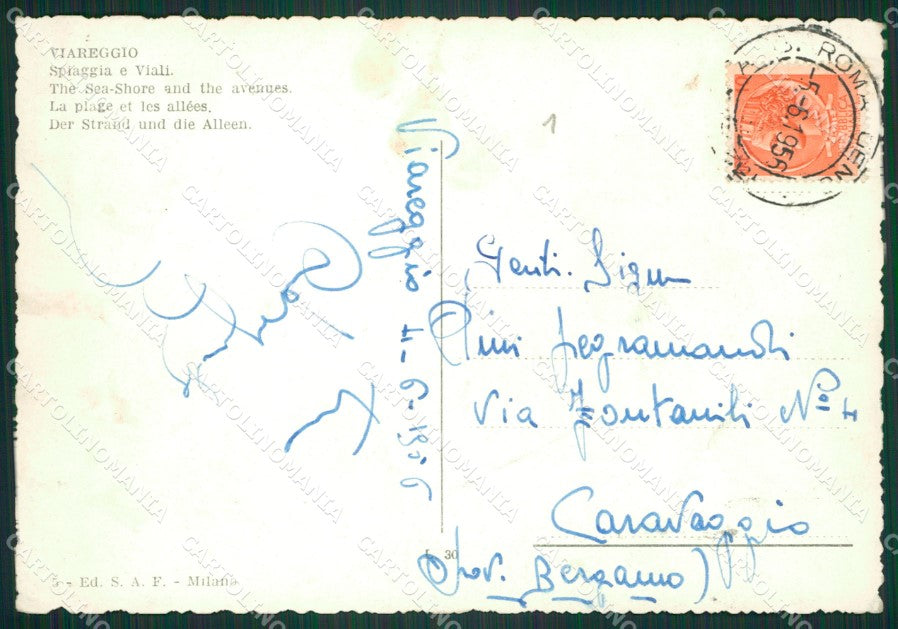 VIAREGGIO
Spiaggia e Viali.
The Sea-Shore and the avenues.
La plage et les allées.
Der Strand und die Alleen.
1
ROMA
-5-6.1956
Viareggio 4-6-1956
Genti. Sign
Via Fontanili Nº
Caravaggio
(Prov. Bergamo)
L. 30
- Ed. S. A. F. - Milano
CARTOLINOMANIA